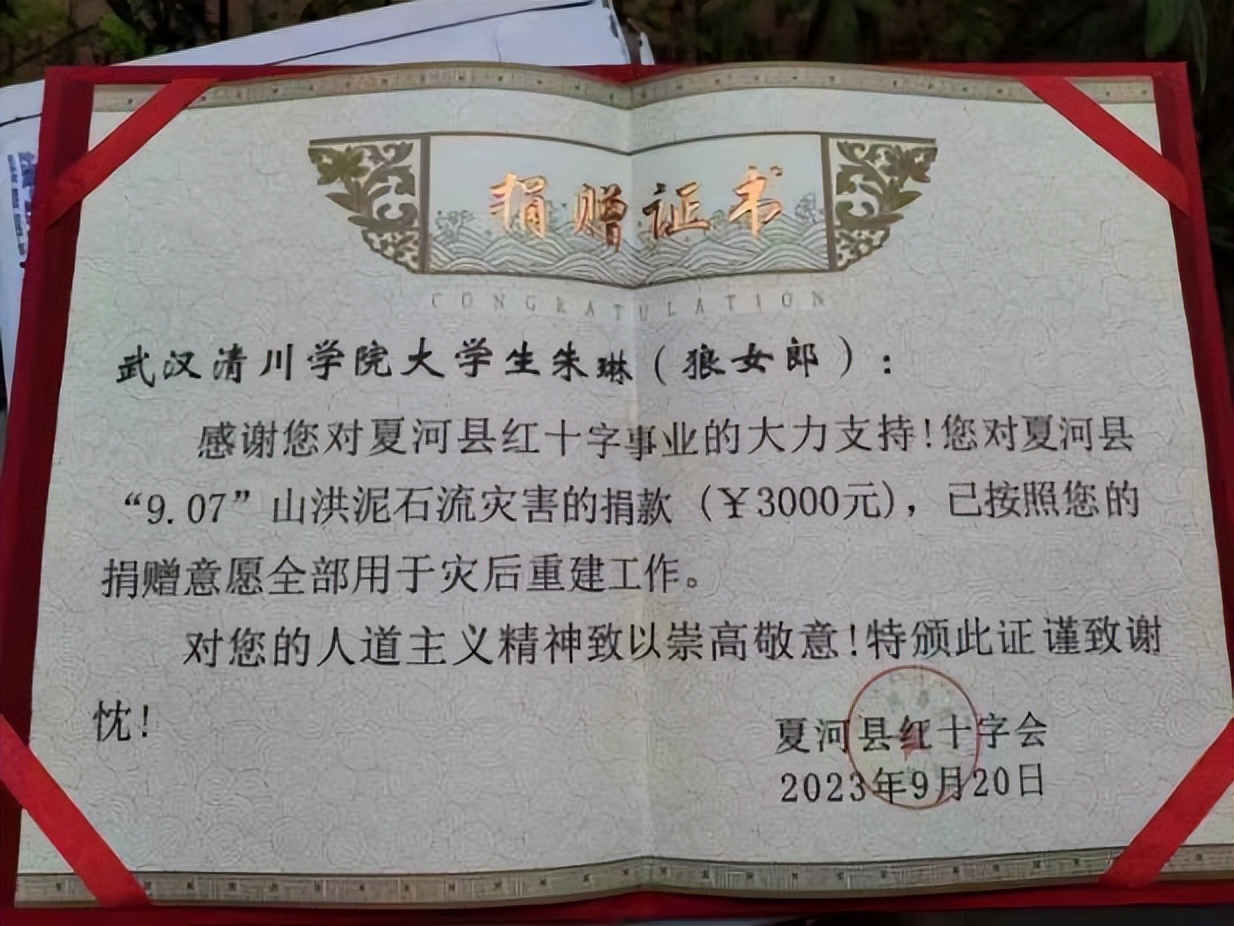 捐赠证书
CONGRATULATION
武汉清川学院大学生朱琳（狼女郎）：
感谢您对夏河县红十字事业的大力支持！您对夏河县
“9.07”山洪泥石流灾害的捐款（￥3000元），已按照您的
捐赠意愿全部用于灾后重建工作。
对您的人道主义精神致以崇高敬意！特颁此证谨致谢
忱！
夏河县红十字会
2023年9月20日